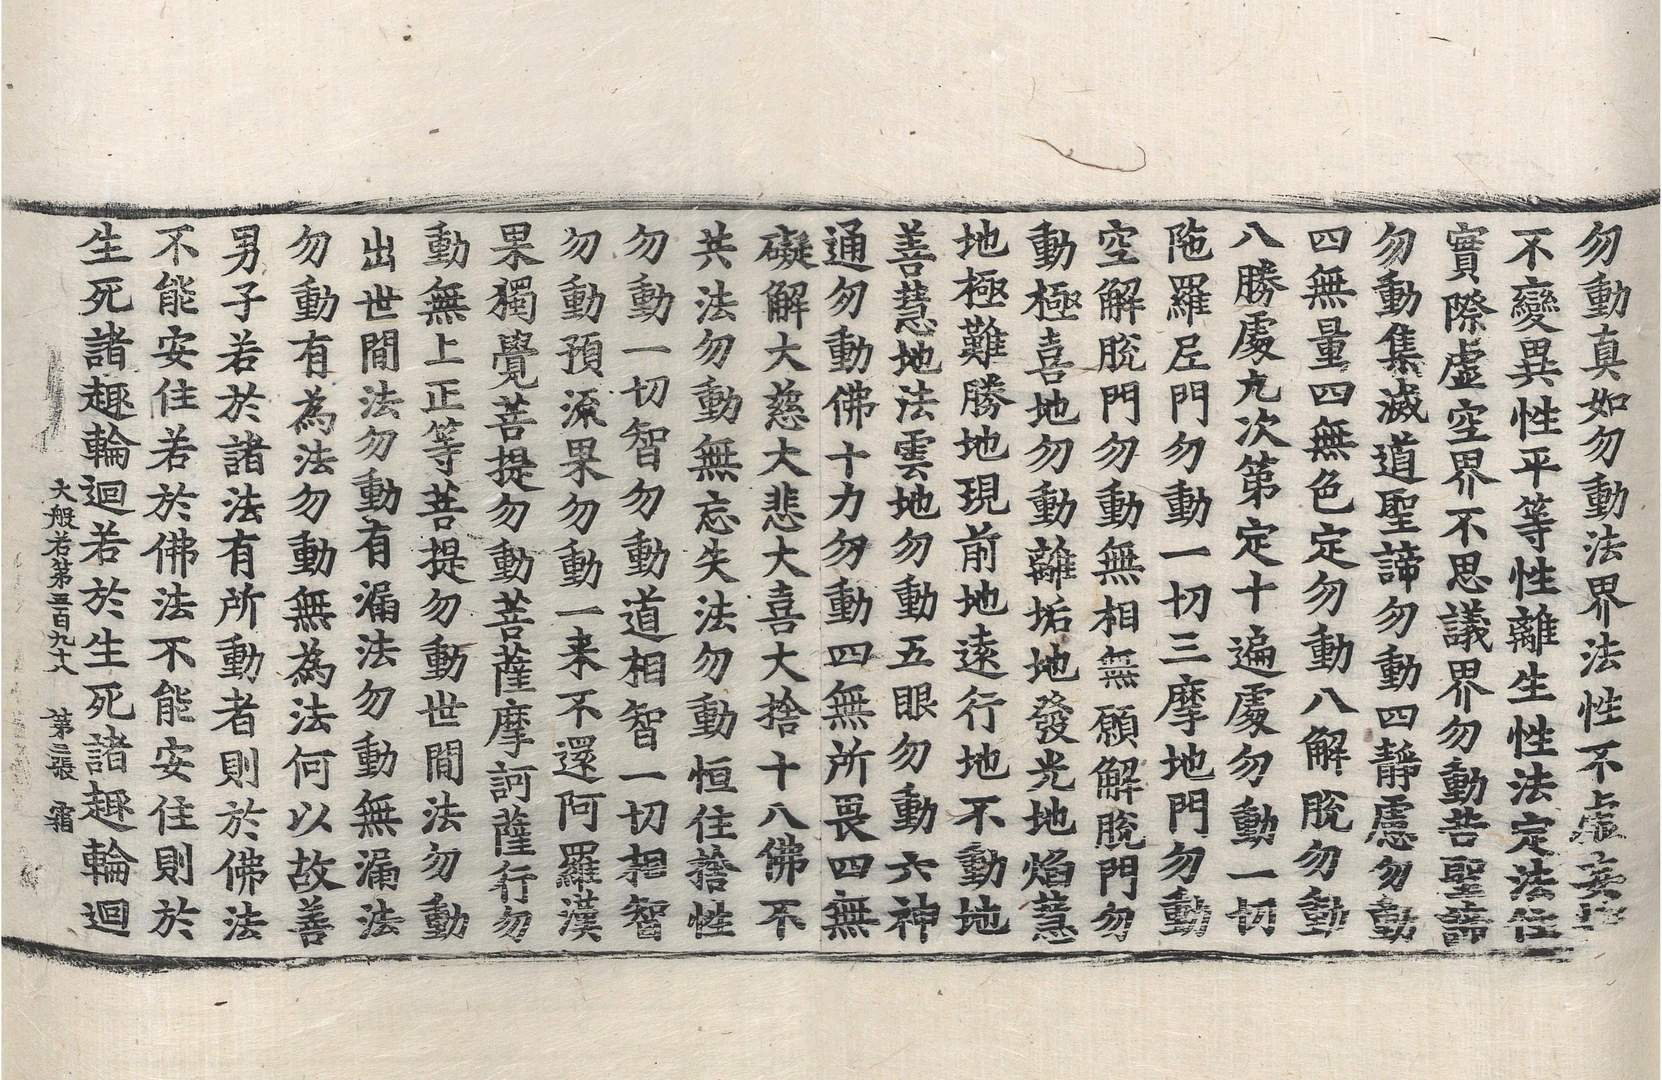 勿動真如勿動法界法性不虛妄性
不變異性平等性離生性法定法住
實際虛空界不思議界勿動苦聖諦
勿動集滅道聖諦勿動四靜慮勿動
四無量四無色定勿動八解脫勿動
八勝處九次第定十遍處勿動一切
陁羅尼門勿動一切三摩地門勿動
空解脫門勿動無相無願解脫門勿
動極喜地勿動離垢地發光地焰慧
地極難勝地現前地遠行地不動地
善慧地法雲地勿動五眼勿動六神
通勿動佛十力勿動四無所畏四無
礙解大慈大悲大喜大捨十八佛不
共法勿動無忘失法勿動恒住捨性
勿動一切智勿動道相智一切相智
勿動預流果勿動一来不還阿羅漢
果獨覺菩提勿動菩薩摩訶薩行勿
動無上正等菩提勿動世間法勿動
出世間法勿動有漏法勿動無漏法
勿動有為法勿動無為法何以故善
男子若於諸法有所動者則於佛法
不能安住若於佛法不能安住則於
生死諸趣輪迴若於生死諸趣輪迴
大般若第五百九十八 第二張 霜